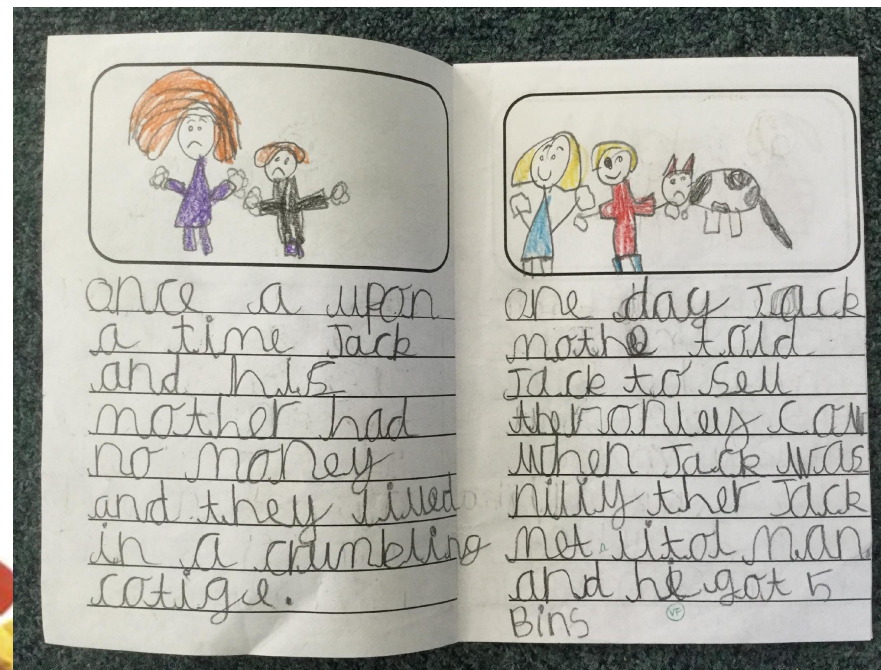 once a upon
a time Jack
and his
mother had
no money
and they lived
in a crumbling
cotige.
one day Jack
mothe told
Jack to sell
ther onley cow
when Jack was
nilly ther Jack
met a litol man
and he got 5
Bins
VF